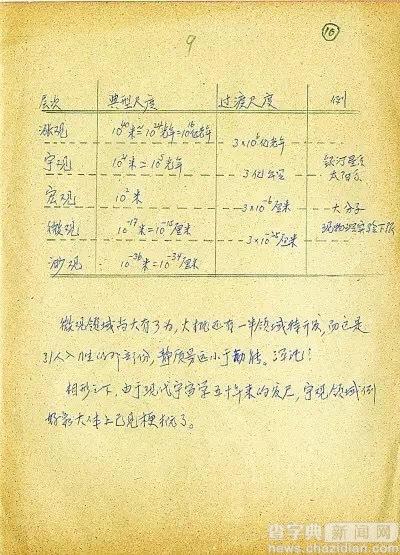 16
9
层次 典型尺度 过渡尺度 例
胀观 10⁴⁰米≃10²⁴光年=10¹⁶亿光年
3×10⁶亿光年
宇观 10²¹米≃10⁵光年 银河星系
3亿公里 太阳系
宏观 10²米
3×10⁻⁶厘米 大分子
微观 10⁻¹⁷米=10⁻¹⁵厘米
3×10⁻²⁵厘米
渺观 10⁻³⁶米=10⁻³⁴厘米
微观领域尚大有可为,大概还有一半领域待开发,而这是
引人入胜的部份,静质量远小于动能。
相形之下,由于现代宇宙学五十年来的发展,宇观领域倒
好象大体上已见梗概了。
查字典新闻网
news.chazidian.com